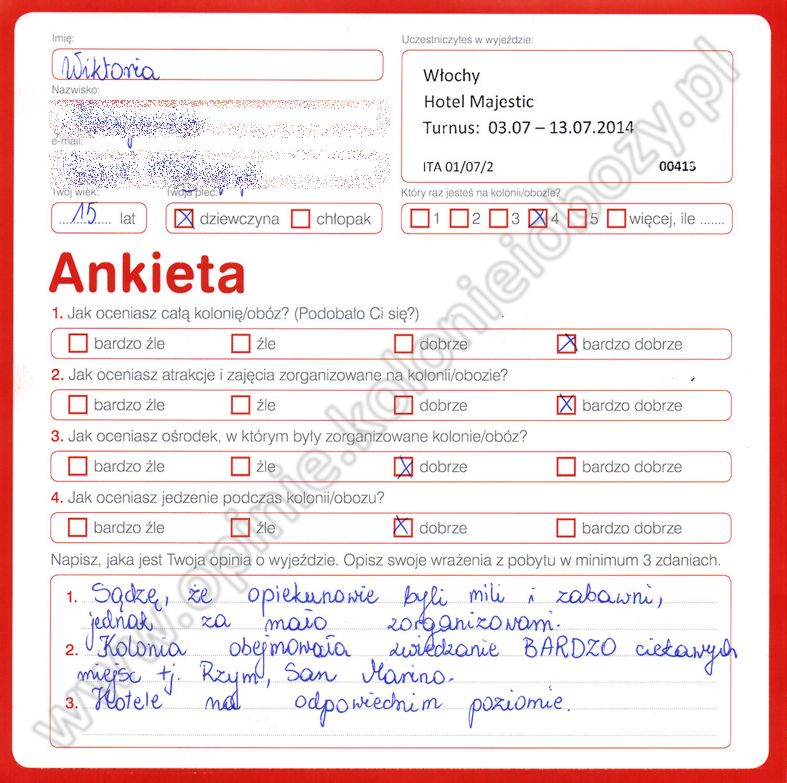 Imię:
Uczestniczyłeś w wyjeździe:
Wiktoria
Włochy
Nazwisko:
Hotel Majestic
Turnus: 03.07 – 13.07.2014
e-mail:
ITA 01/07/2 00415
Twój wiek:
Twoja płeć:
Który raz jesteś na kolonii/obozie?
15 lat
dziewczyna chłopak
1 2 3 4 5 więcej, ile .......
Ankieta
1. Jak oceniasz całą kolonię/obóz? (Podobało Ci się?)
bardzo źle źle dobrze bardzo dobrze
2. Jak oceniasz atrakcje i zajęcia zorganizowane na kolonii/obozie?
bardzo źle źle dobrze bardzo dobrze
3. Jak oceniasz ośrodek, w którym były zorganizowane kolonie/obóz?
bardzo źle źle dobrze bardzo dobrze
4. Jak oceniasz jedzenie podczas kolonii/obozu?
bardzo źle źle dobrze bardzo dobrze
Napisz, jaka jest Twoja opinia o wyjeździe. Opisz swoje wrażenia z pobytu w minimum 3 zdaniach.
1. Sądzę, że opiekunowie byli mili i zabawni,
jednak za mało zorganizowani.
2. Kolonia obejmowała zwiedzanie BARDZO ciekawych
miejsc tj. Rzym, San Marino.
3. Hotele na odpowiednim poziomie.
www.opinie.kolonieiobozy.pl